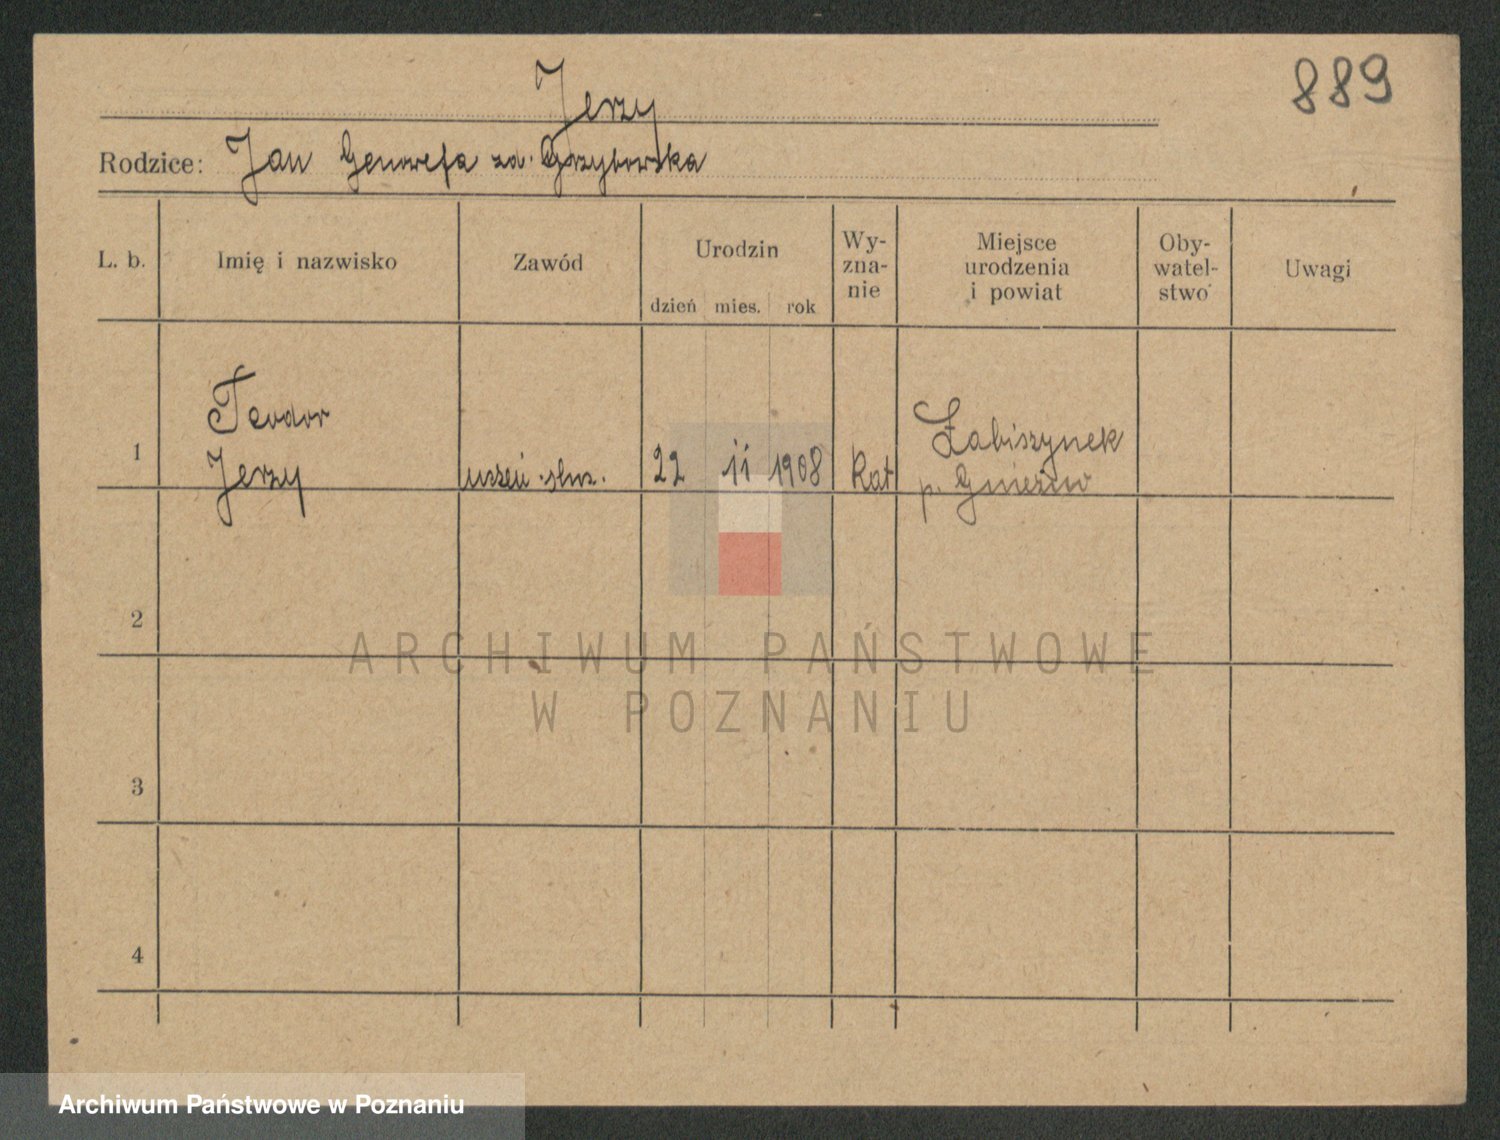 889
Jerzy
Rodzice: Jan Genowefa zd. Grzybowska
L. b. Imię i nazwisko Zawód Urodzin dzień mies. rok Wy-zna-nie Miejsce urodzenia i powiat Oby-watel-stwo Uwagi
1 Teodor Jerzy uczeń ślus. 22 11 1908 kat Łabiszynek p. Gniezno
2
3
4
ARCHIWUM PAŃSTWOWE
W POZNANIU
Archiwum Państwowe w Poznaniu